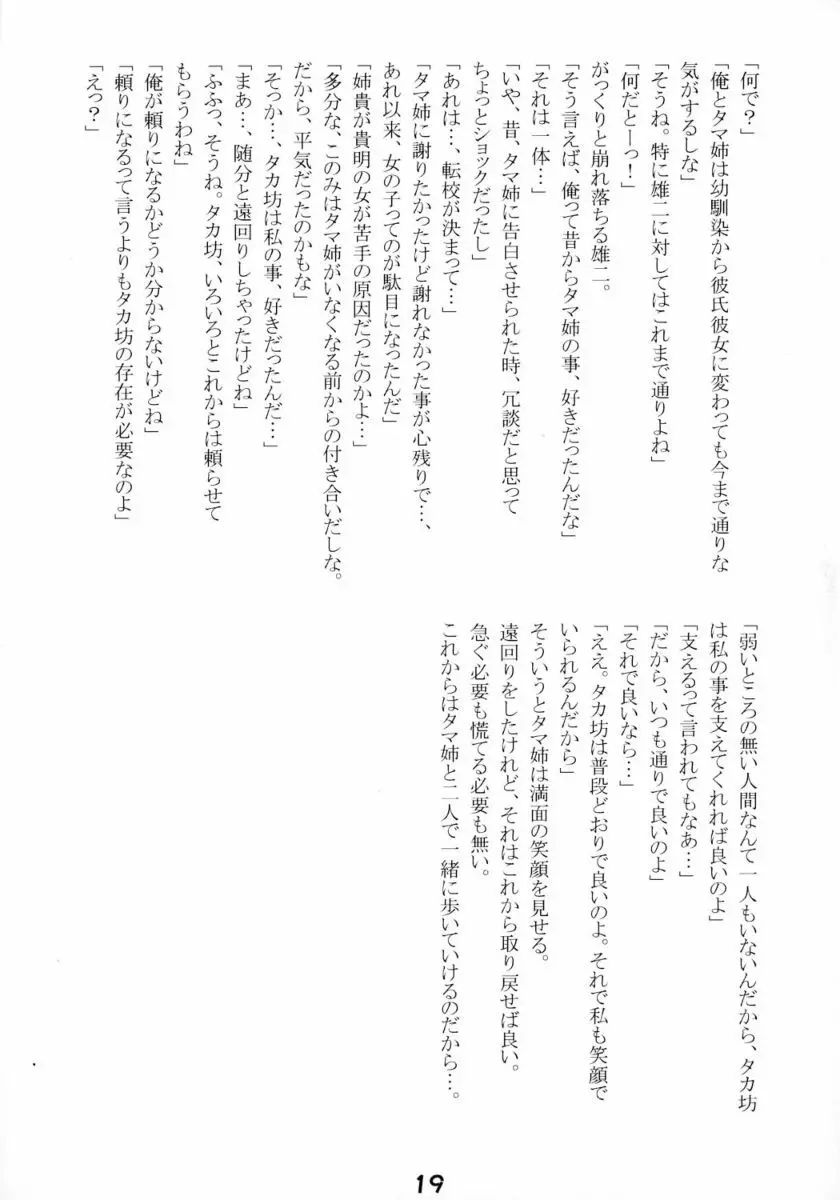 「何で？」
「俺とタマ姉は幼馴染から彼氏彼女に変わっても今まで通りな
気がするしな」
「そうね。特に雄二に対してはこれまで通りよね」
「何だとーっ！」
がっくりと崩れ落ちる雄二。
「そう言えば、俺って昔からタマ姉の事、好きだったんだな」
「それは一体…」
「いや、昔、タマ姉に告白させられた時、冗談だと思って
ちょっとショックだったし」
「あれは…、転校が決まって…」
「タマ姉に謝りたかったけど謝れなかった事が心残りで…、
あれ以来、女の子ってのが駄目になったんだ」
「姉貴が貴明の女が苦手の原因だったのかよ…」
「多分な、このみはタマ姉がいなくなる前からの付き合いだしな。
だから、平気だったのかもな」
「そっか…、タカ坊は私の事、好きだったんだ…」
「まあ…、随分と遠回りしちゃったけどね」
「ふふっ、そうね。タカ坊、いろいろとこれからは頼らせて
もらうわね」
「俺が頼りになるかどうか分からないけどね」
「頼りになるって言うよりもタカ坊の存在が必要なのよ」
「えっ？」
「弱いところの無い人間なんて一人もいないんだから、タカ坊
は私の事を支えてくれれば良いのよ」
「支えるって言われてもなあ…」
「だから、いつも通りで良いのよ」
「それで良いなら…」
「ええ。タカ坊は普段どおりで良いのよ。それで私も笑顔で
いられるんだから」
そういうとタマ姉は満面の笑顔を見せる。
遠回りをしたけれど、それはこれから取り戻せば良い。
急ぐ必要も慌てる必要も無い。
これからはタマ姉と二人で一緒に歩いていけるのだから…。
19